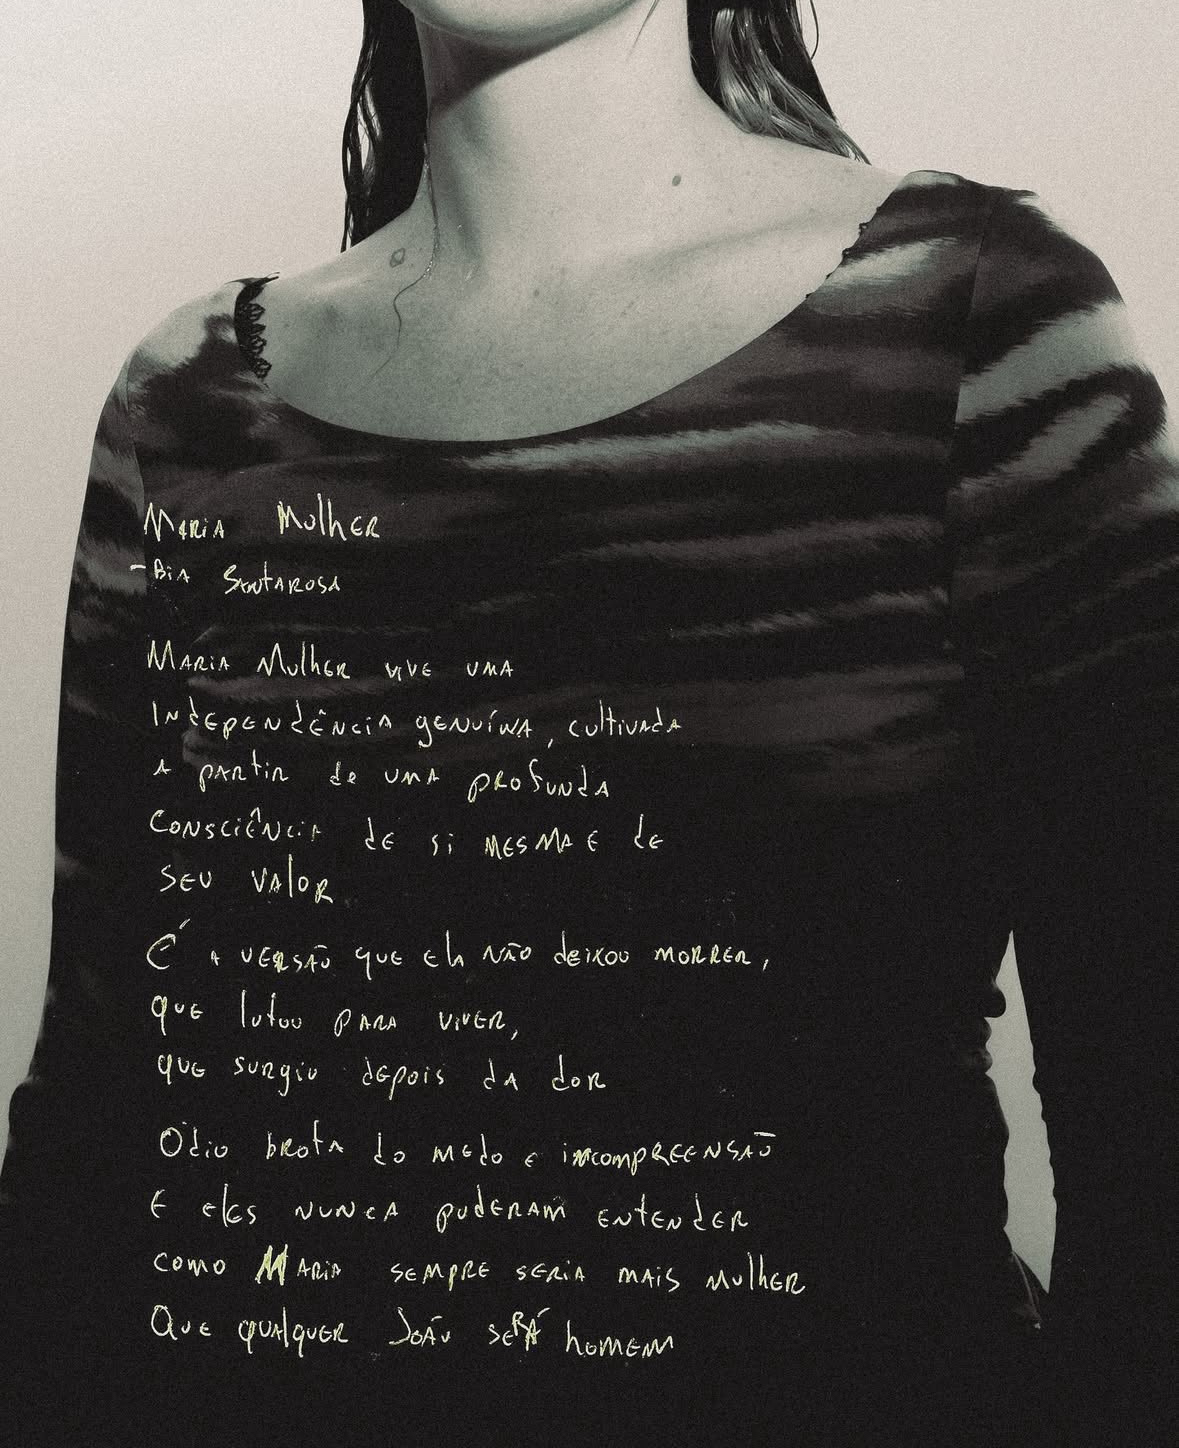 Maria Mulher
- Bia Santarosa
Maria Mulher vive uma
Independência genuína, cultivada
a partir de uma profunda
consciência de si mesma e de
seu valor
É a versão que ela não deixou morrer,
que lutou para viver,
que surgiu depois da dor
Odio brota do medo e incompreensão
E eles nunca puderam entender
como Maria sempre seria mais mulher
Que qualquer João será homem